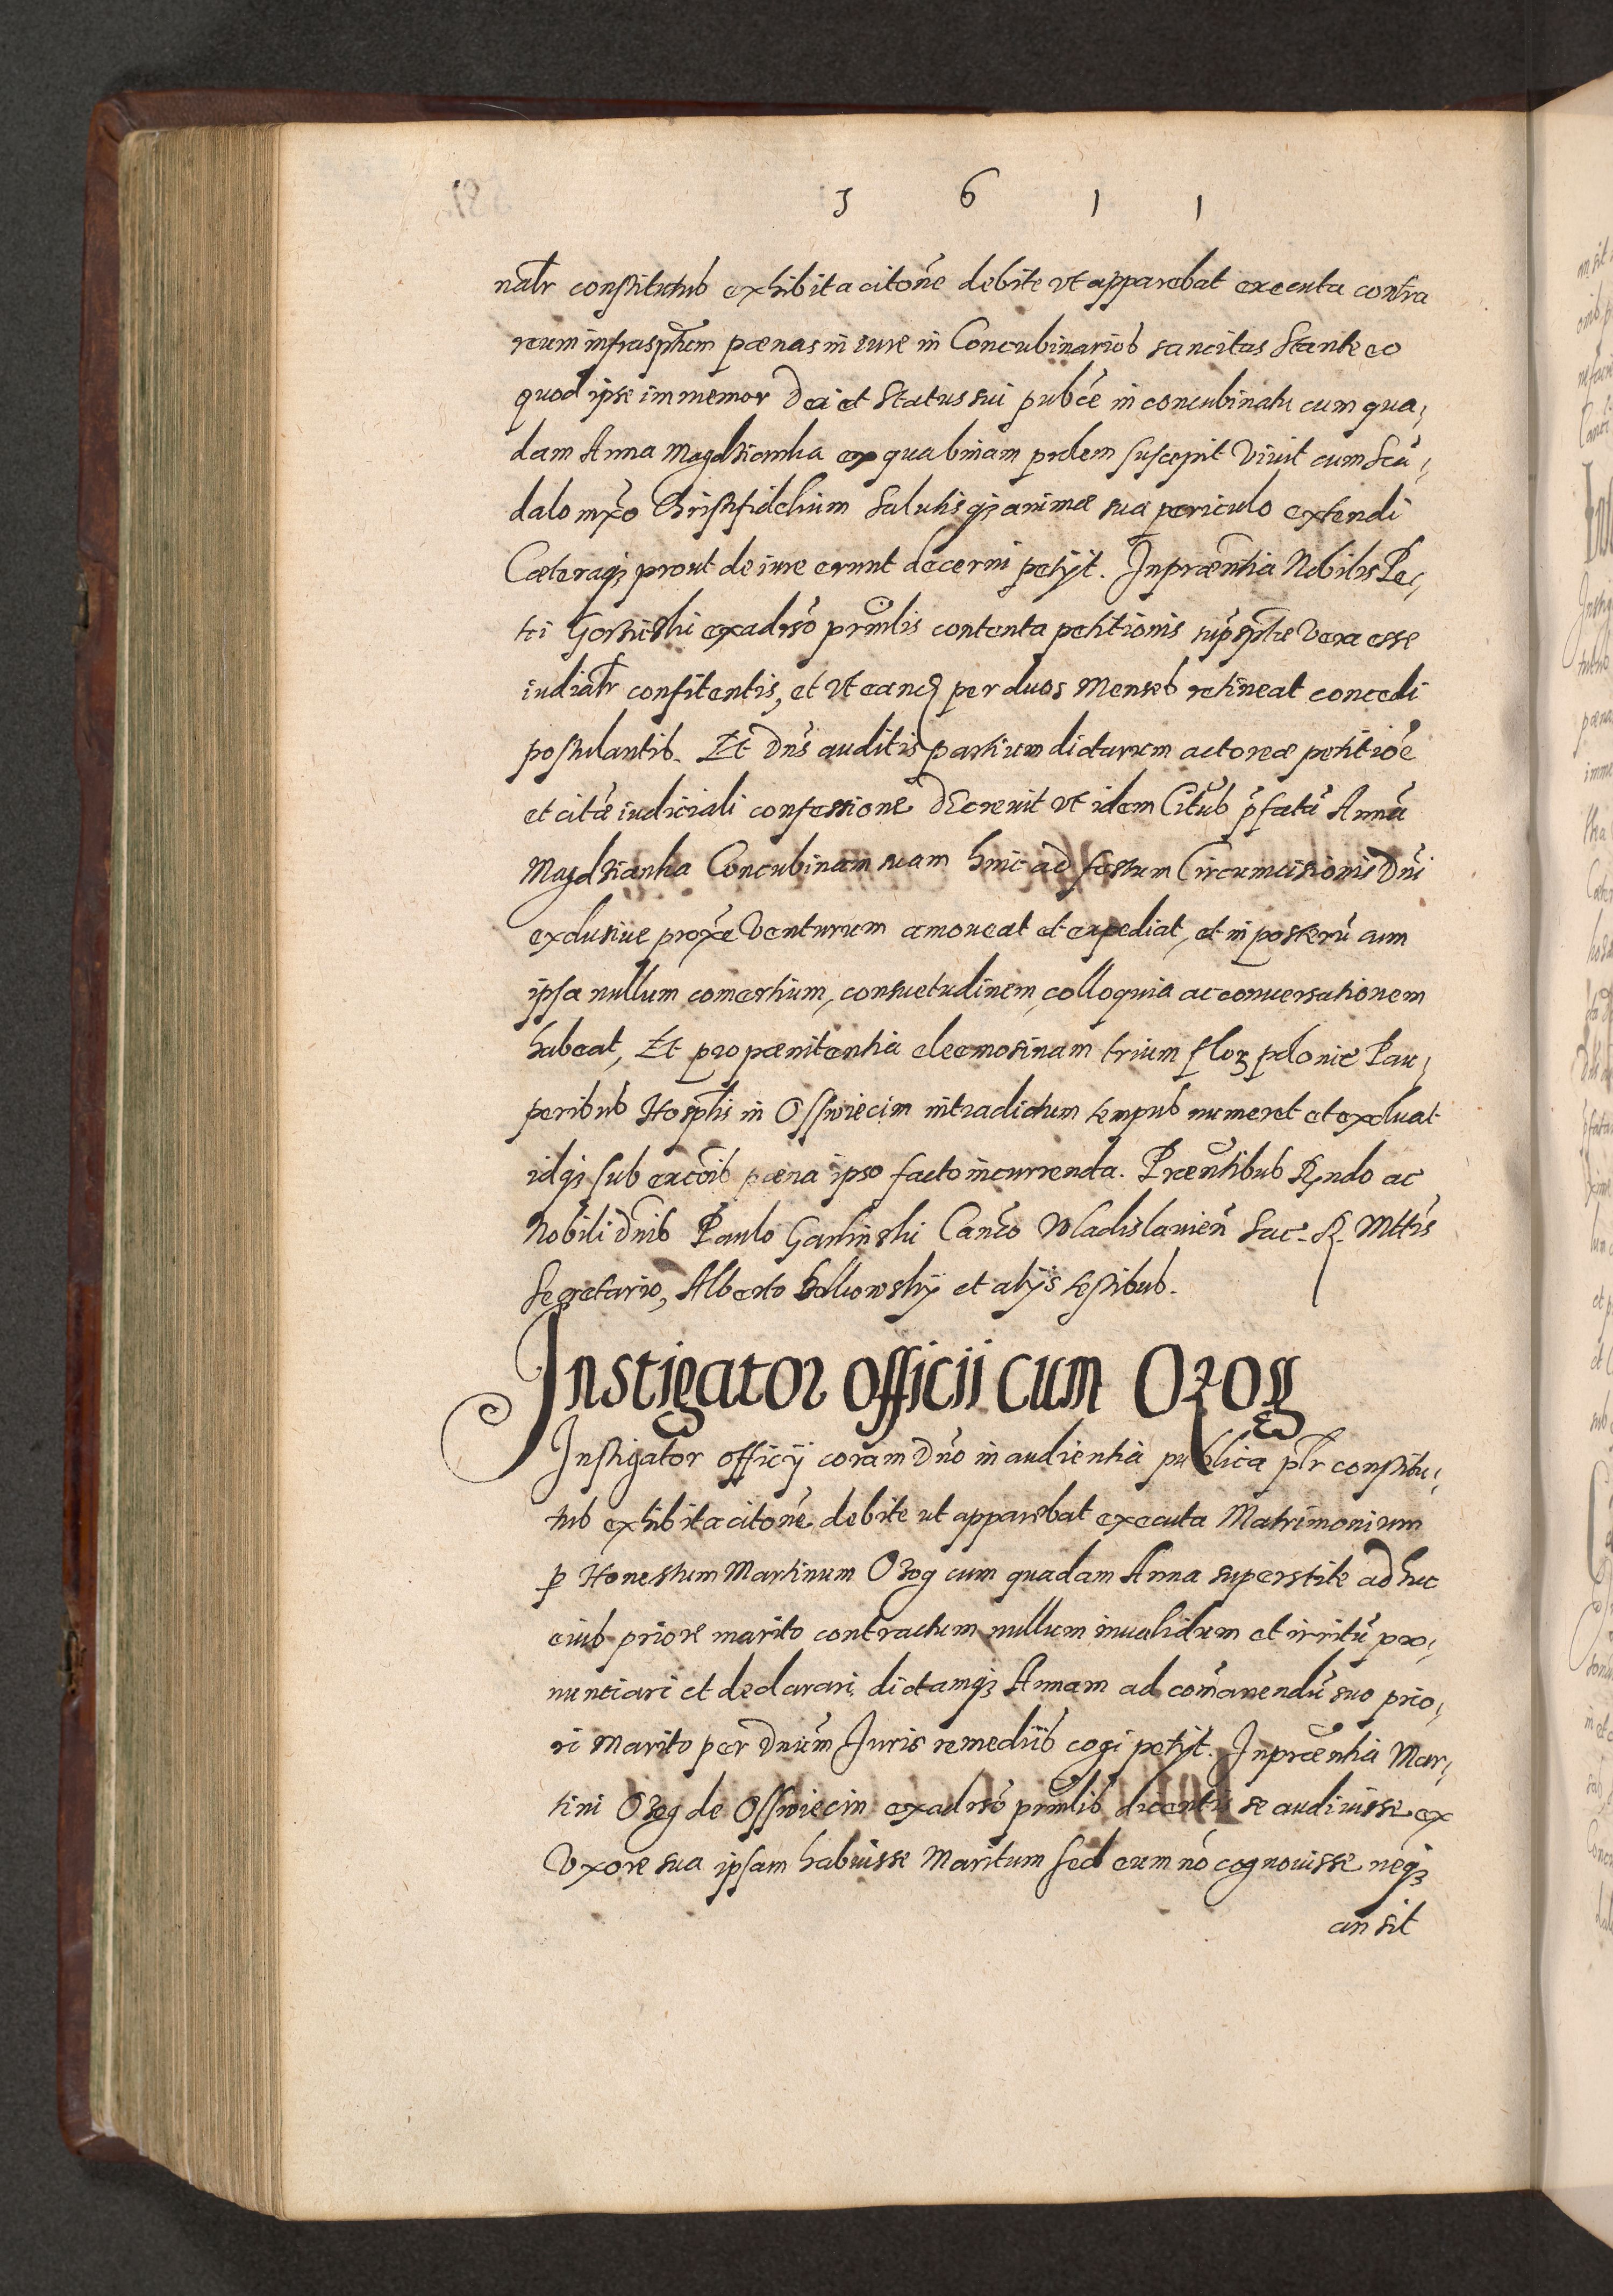 1 6 1 1
nalr constitutus exhibita citone debite vt apparebat executa contra
reum infrasptum poenas in iure in Concubinarios sancitas Stante eo
quod ipse immemor Dei et Status sui pubce in concubinatu cum qua,
dam Anna Magdzianka ex qua binam prolem suscepit Viuit cum Scā,
dalo mxo Christifidelium Salutisqz animæ suæ periculo extendi
Cæteraqz prout de iure erunt decerni petijt. In præntia Nobilis Pe,
tri exadrso prmlis contenta petitionis supsptæ Vera esse
iudialr confitentis, et vt eandē per duos Menses retineat concedi
postulantis. Et Dns auditis partium dictarum actoreæ petitiōe
et citā iudiciali confessione Decreuit vt idem Citus pfatā Annā
Magdzianka Concubinam suam hinc ad festum Circumcisionis Dni
exclusiue proxe Venturum amoueat et expediat, et in posterū cum
ipsa nullum comertium, consuetudinem, colloquia ac conuersationem
habeat, Et pro pœnitentia eleemosinam trium flor polonic Pau,
peribus Hosplis in Osswiecim intra dictum tempus numeret et exoluat
idqz sub excōis pœna ipso facto incurrenda. Præntibus Rndo ac
Nobili Dnis Paulo Garlinski Canco Wladislauien Sac. R. Mttis
Secretario, Alberto et alijs testibus.
Instigator officii cum Ozog
Instigator officij coram Dno in audientia publica plr constitu,
tus exhibita citone debite ut apparebat executa Matrimonium
p Honestum Martinum Ozog cum quadam Anna superstite adhuc
eius priore marito contractum nullum inualidum et irritū pro,
nunciari et declarari, dictamqz Annam ad comanendū suo prio,
ri Marito per Dnum Juris remediis cogi petijt. In præntia Mar,
tini Ozog de Osswiecim exadrso prmlis dicentis se audiuisse ex
Vxore sua ipsam habuisse Maritum sed eum nō cognouisse neqz
an sit